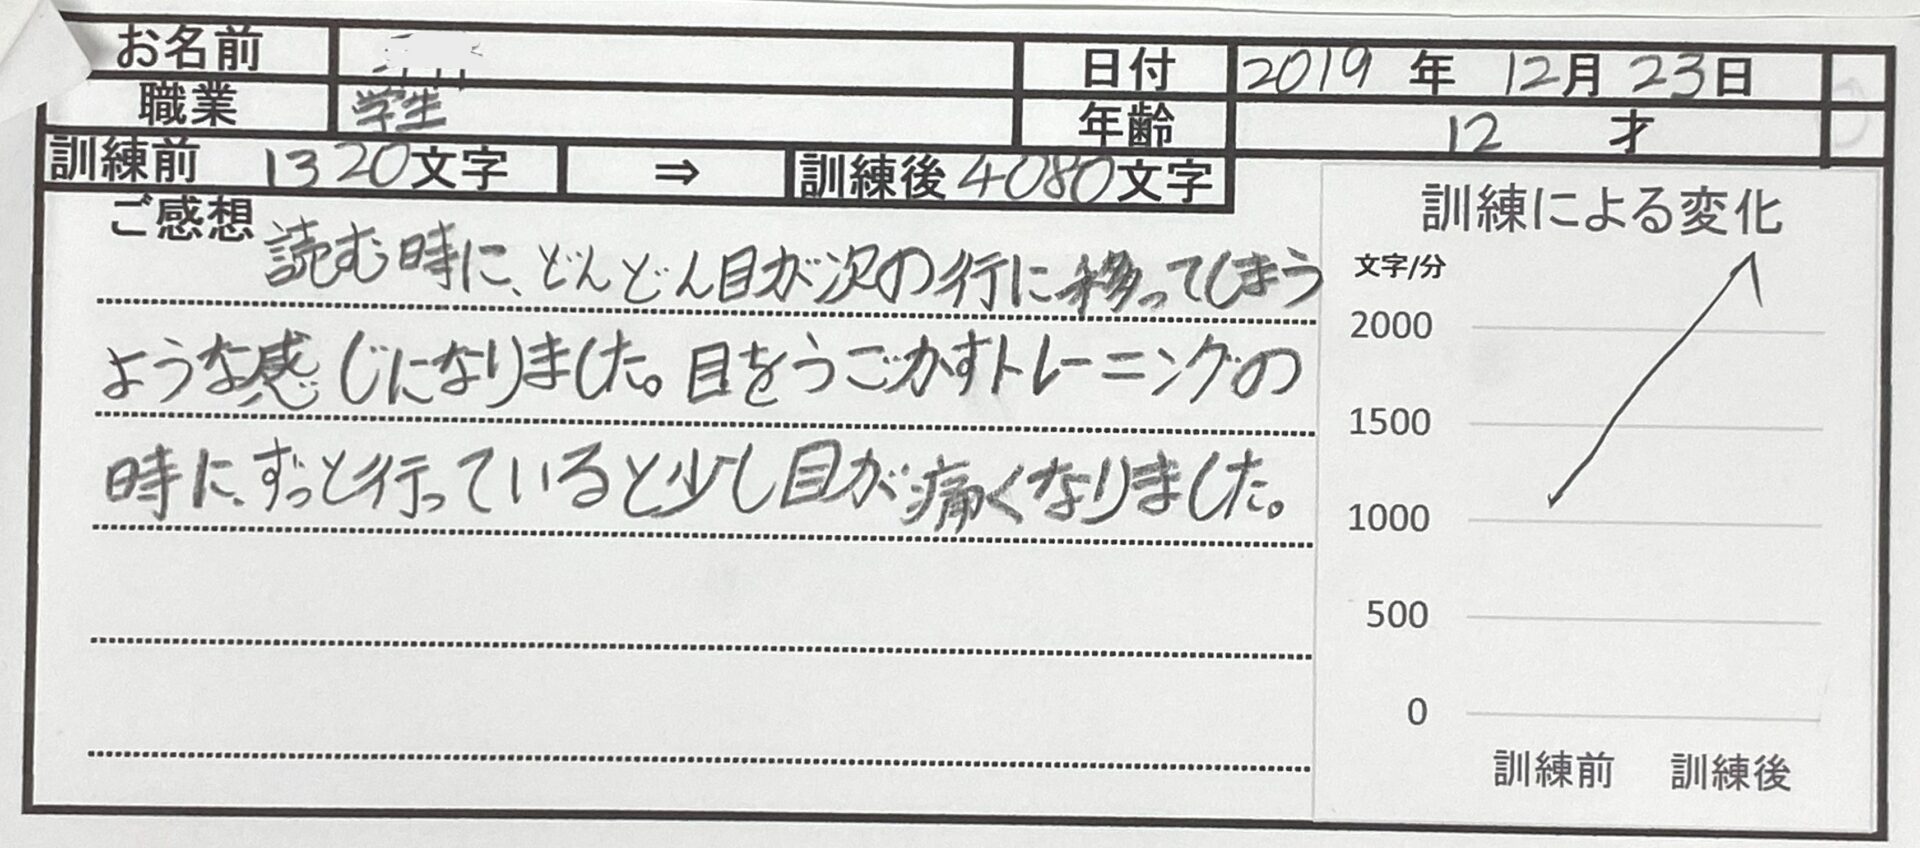 お名前
日付 2019 年 12月 23日
職業 学生
年齢 12 才
訓練前 1320文字 ⇒ 訓練後 4080文字
ご感想
読む時に、どんどん目が次の行に移ってしまう
ような感じになりました。目をうごかすトレーニングの
時に、ずっと行っていると少し目が痛くなりました。
訓練による変化
文字/分
2000
1500
1000
500
0
訓練前 訓練後